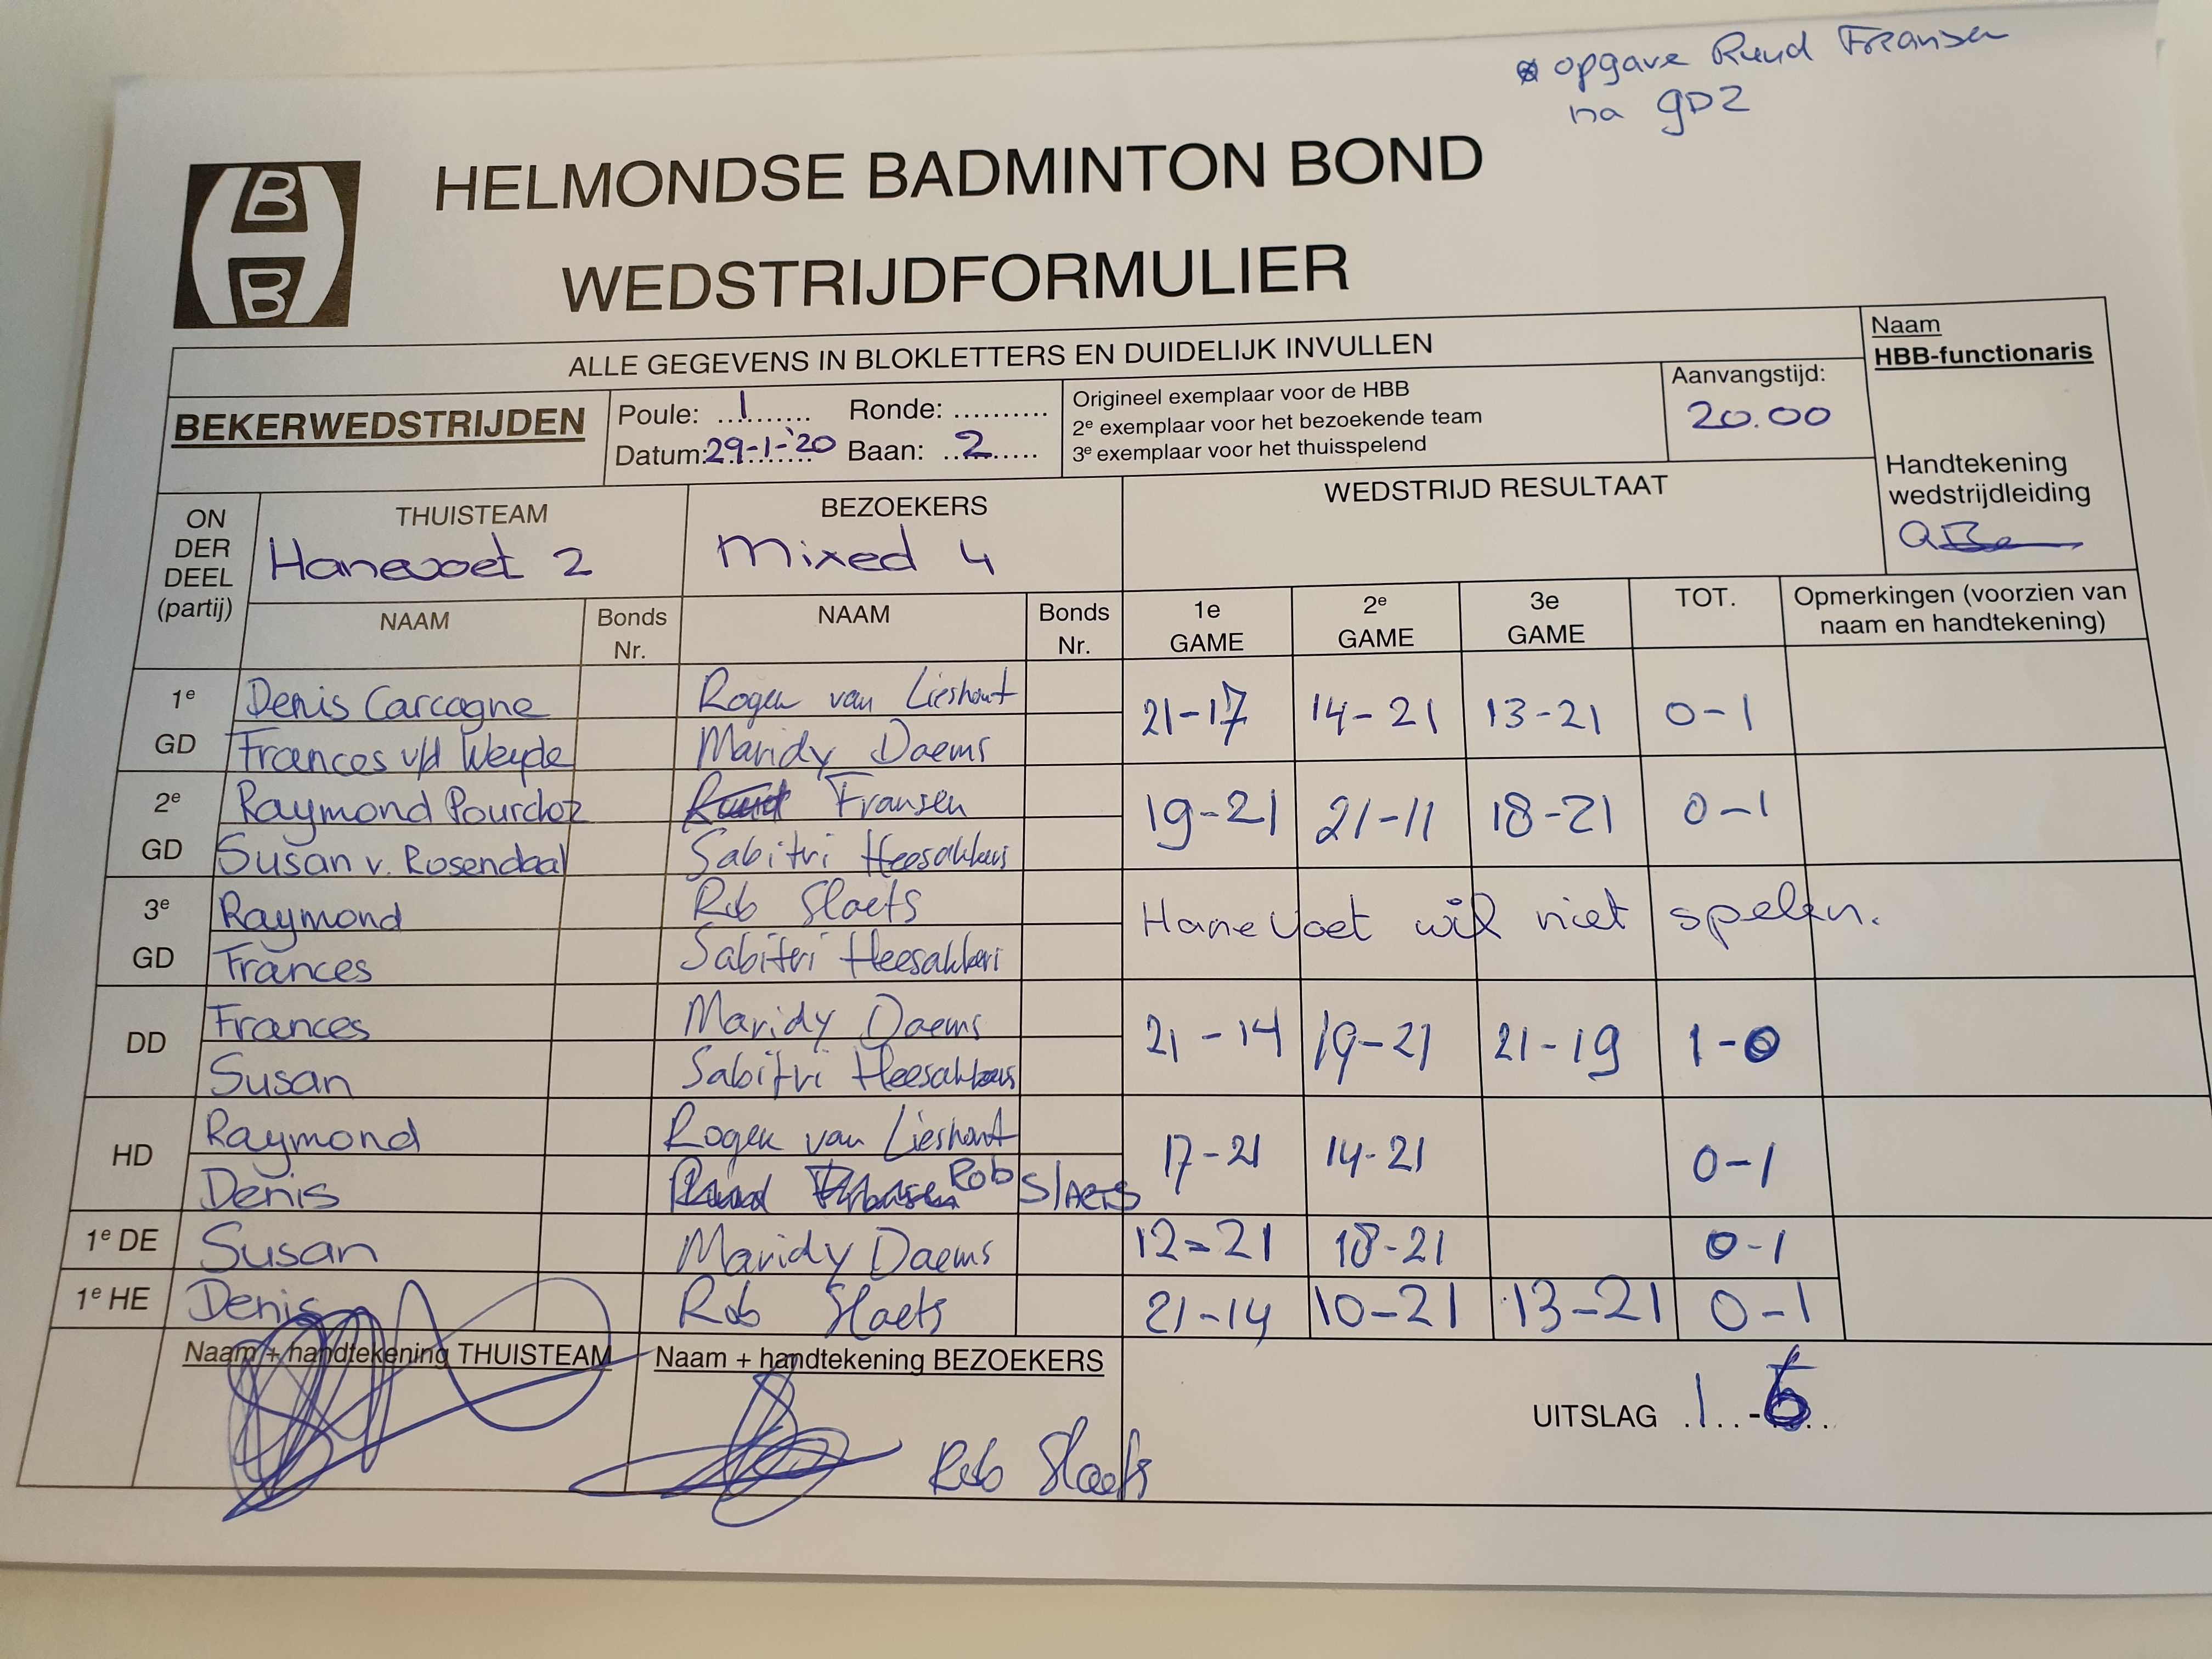 ⊗ opgave Ruud Fransen
na GD2
B
H
B
HELMONDSE BADMINTON BOND
WEDSTRIJDFORMULIER
ALLE GEGEVENS IN BLOKLETTERS EN DUIDELIJK INVULLEN
Naam
HBB-functionaris
BEKERWEDSTRIJDEN
Poule: ...1....... Ronde: ..........
Datum:29-1-'20 Baan: ...2......
Origineel exemplaar voor de HBB
2e exemplaar voor het bezoekende team
3e exemplaar voor het thuisspelend
Aanvangstijd:
20.00
Handtekening
wedstrijdleiding
ON
DER
DEEL
(partij)
THUISTEAM
Hanevoet 2
BEZOEKERS
Mixed 4
WEDSTRIJD RESULTAAT
NAAM Bonds Nr. NAAM Bonds Nr. 1e GAME 2e GAME 3e GAME TOT. Opmerkingen (voorzien van naam en handtekening)
1e Denis Carcagne Roger van Lieshout 21-17 14-21 13-21 0-1
GD Frances v/d Weyde Maridy Daems
2e Raymond Pourchez Ruud Fransen 19-21 21-11 18-21 0-1
GD Susan v. Rosendaal Sabitri Heesakkers
3e Raymond Rob Slaets Hanevoet wil niet spelen.
GD Frances Sabitri Heesakkers
DD Frances Maridy Daems 21-14 19-21 21-19 1-0
Susan Sabitri Heesakkers
HD Raymond Roger van Lieshout 17-21 14-21 0-1
Denis Ruud Fransen Rob Slaets
1e DE Susan Maridy Daems 12-21 18-21 0-1
1e HE Denis Rob Slaets 21-14 10-21 13-21 0-1
Naam + handtekening THUISTEAM
Naam + handtekening BEZOEKERS
UITSLAG .1..-6...
Rob Slaets